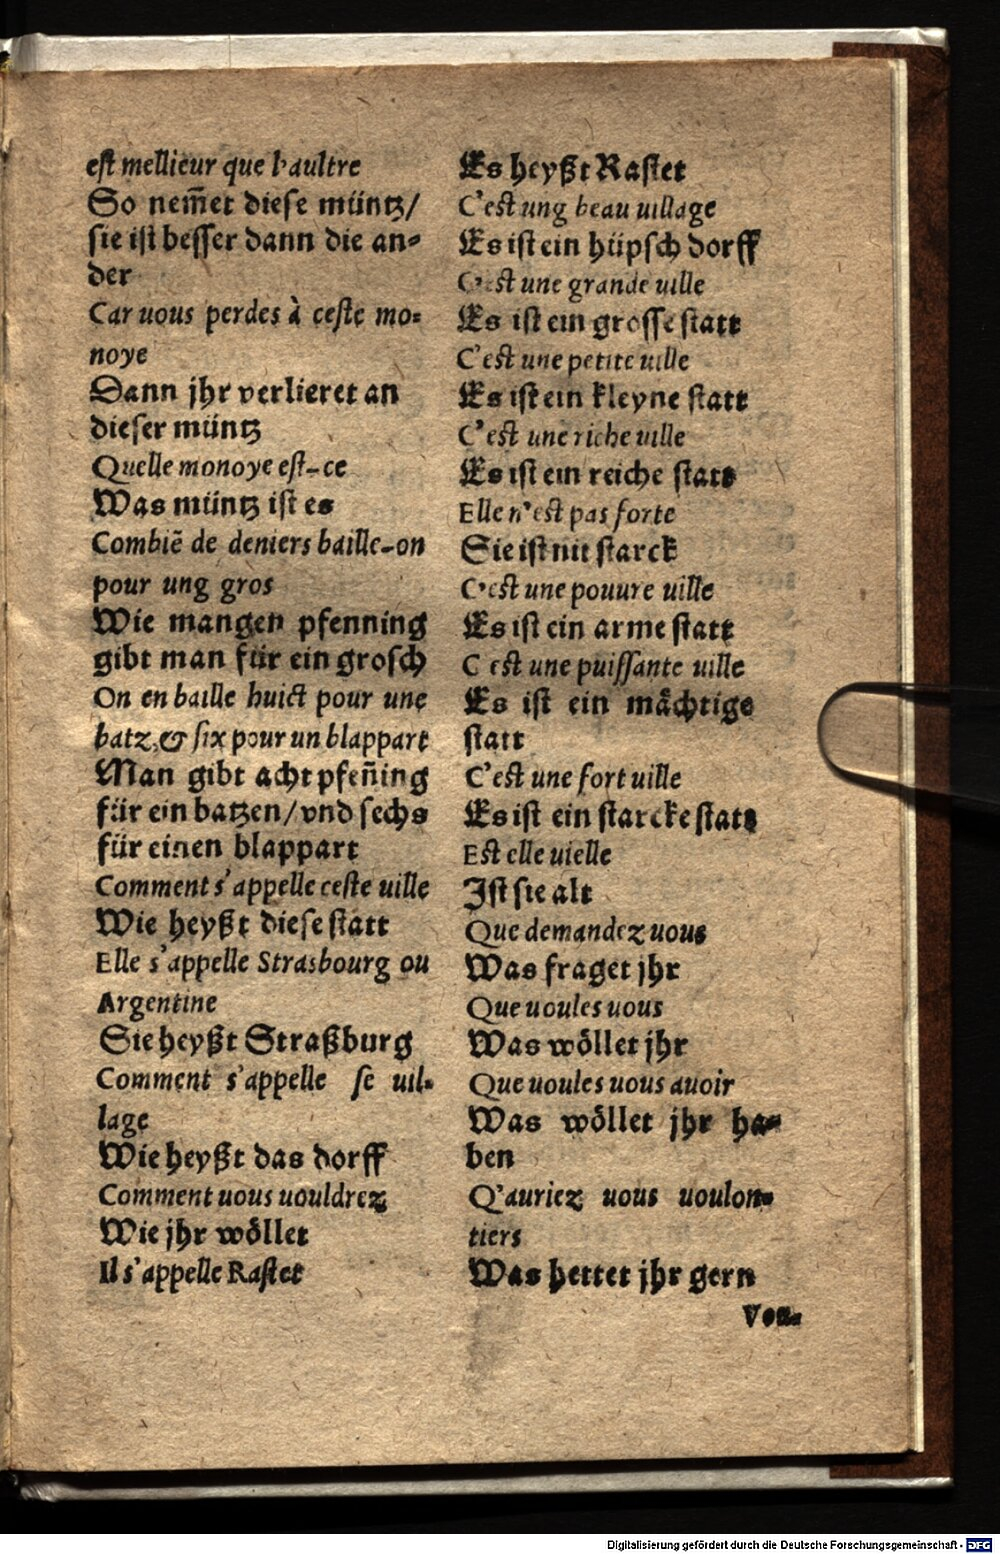 est mellieur que l'aultre
So nem̃et diese müntz/
sie ist besser dann die an⸗
der
Car uous perdes à ceste mo⸗
noye
Dann jhr verlieret an
dieser müntz
Quelle monoye est-ce
Was müntz ist es
Combiẽ de deniers baille-on
pour ung gros
Wie mangen pfenning
gibt man für ein grosch
On en baille huict pour une
batz, & six pour un blappart
Man gibt acht pfeñing
für ein batzen/vnd sechs
für einen blappart
Comment s'appelle ceste uille
Wie heyßt diese statt
Elle s'appelle Strasbourg ou
Argentine
Sie heyßt Straßburg
Comment s'appelle se uil⸗
lage
Wie heyßt das dorff
Comment uous uouldrez
Wie jhr wöllet
Il s'appelle Rastet
Es heyßt Rastet
C'est ung beau uillage
Es ist ein hüpsch dorff
C'est une grande uille
Es ist ein grosse statt
C'est une petite uille
Es ist ein kleyne statt
C'est une riche uille
Es ist ein reiche statt
Elle n'est pas forte
Sie ist nit starck
C'est une pouure uille
Es ist ein arme statt
C'est une puissante uille
Es ist ein mächtige
statt
C'est une fort uille
Es ist ein starcke statt
Est elle uielle
Jst sie alt
Que demandez uous
Was fraget jhr
Que uoules uous
Was wöllet jhr
Que uoules uous auoir
Was wöllet jhr ha⸗
ben
Q'auriez uous uoulon⸗
tiers
Was hettet jhr gern
Digitalisierung gefördert durch die Deutsche Forschungsgemeinschaft - DFG